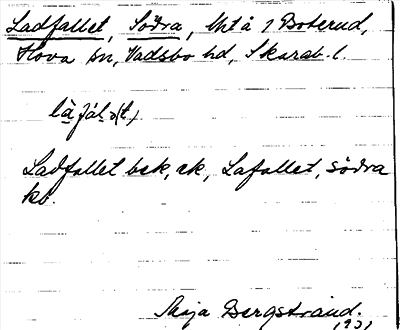 Ladfallet, Södra, lht å 1 Boterud,
Hova sn, Vadsbo hd, Skarab. l.
Ladfallet bek, ek, Lafallet, södra
kb.
Maja Bergstrand.